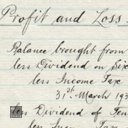 Profit and Loss
Balance brought from
less Dividend on Six
less Income Tax
31st March 193
less Dividend of Ten
less Income Tax